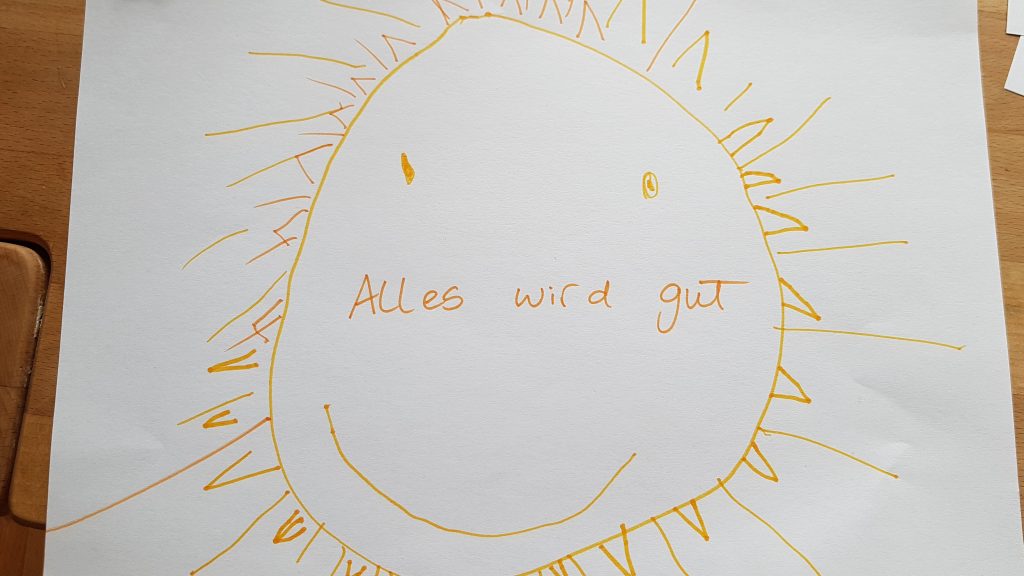 Alles wird gut